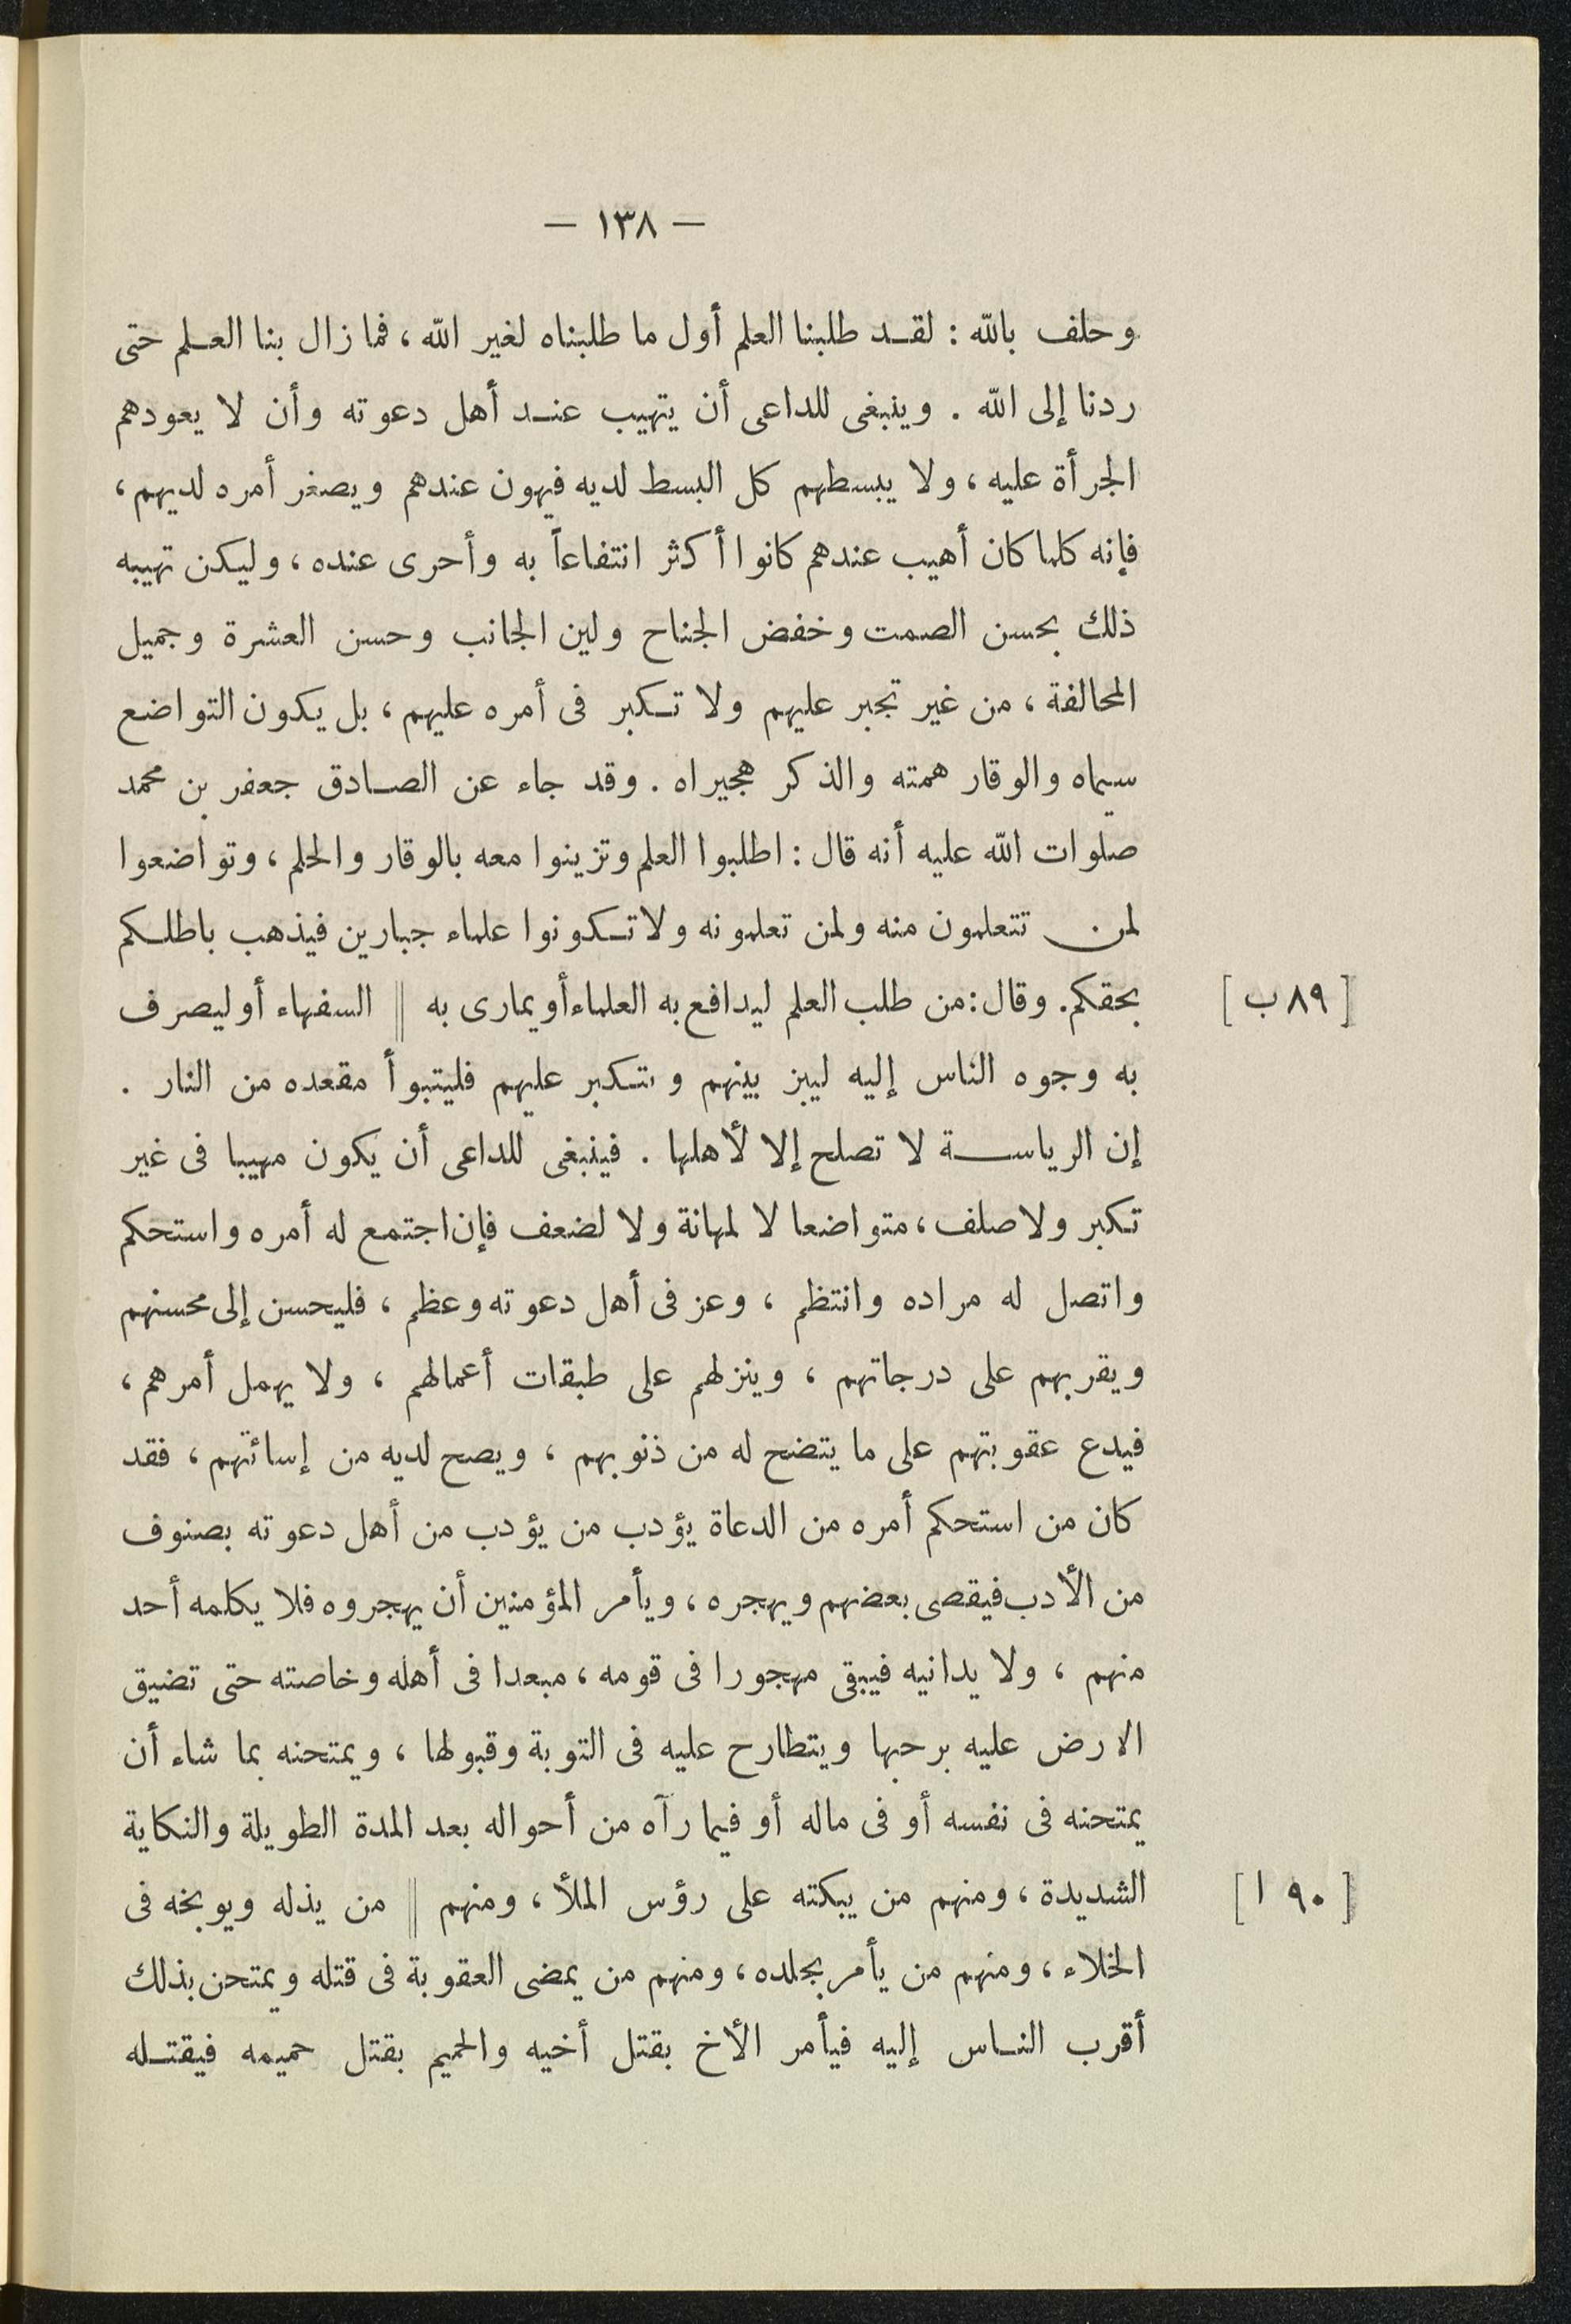 — ١٣٨ —
وحلف بالله : لقد طلبنا العلم أول ما طلبناه لغير الله ، فما زال بنا العلم حتى
ردنا إلى الله . وينبغى للداعى أن يتهيب عند أهل دعوته وأن لا يعودهم
الجرأة عليه ، ولا يبسطهم كل البسط لديه فيهون عندهم ويصغر أمره لديهم ،
فإنه كلما كان أهيب عندهم كانوا أكثر انتفاعاً به وأحرى عنده ، وليكن تهيبه
ذلك بحسن الصمت وخفض الجناح ولين الجانب وحسن العشرة وجميل
المحالفة ، من غير تجبر عليهم ولا تكبر فى أمره عليهم ، بل يكون التواضع
سيماه والوقار همته والذكر هجيراه . وقد جاء عن الصادق جعفر بن محمد
صلوات الله عليه أنه قال : اطلبوا العلم وتزينوا معه بالوقار والحلم ، وتواضعوا
لمن تتعلمون منه ولمن تعلمونه ولا تكونوا علماء جبارين فيذهب باطلكم
بحقكم . وقال : من طلب العلم ليدافع به العلماء أو يمارى به || السفهاء أو ليصرف [ ٨٩ ب ]
به وجوه الناس إليه ليبز بينهم وتكبر عليهم فليتبوأ مقعده من النار .
إن الرياسة لا تصلح إلا لأهلها . فينبغى للداعى أن يكون مهيبا فى غير
تكبر ولا صلف ، متواضعا لا لمهانة ولا لضعف فإن اجتمع له أمره واستحكم
واتصل له مراده وانتظم ، وعز فى أهل دعوته وعظم ، فليحسن إلى محسنهم
ويقربهم على درجاتهم ، وينزلهم على طبقات أعمالهم ، ولا يهمل أمرهم ،
فيدع عقوبتهم على ما يتضح له من ذنوبهم ، ويصح لديه من إسائتهم ، فقد
كان من استحكم أمره من الدعاة يؤدب من يؤدب من أهل دعوته بصنوف
من الأدب فيقصى بعضهم ويهجره ، ويأمر المؤمنين أن يهجروه فلا يكلمه أحد
منهم ، ولا يدانيه فيبقى مهجورا فى قومه ، مبعدا فى أهله وخاصته حتى تضيق
الارض عليه برحبها ويتطارح عليه فى التوبة وقبولها ، ويمتحنه بما شاء أن
يمتحنه فى نفسه أو فى ماله أو فيما رآه من أحواله بعد المدة الطويلة والنكاية
الشديدة ، ومنهم من يبكته على رؤس الملأ ، ومنهم || من يذله ويوبخه فى [ ٩٠ ا ]
الخلاء ، ومنهم من يأمر بجلده ، ومنهم من يمضى العقوبة فى قتله ويمتحن بذلك
أقرب الناس إليه فيأمر الأخ بقتل أخيه والحميم بقتل حميمه فيقتله